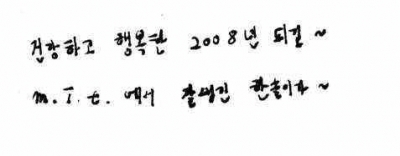 건강하고 행복한 2008년 되길 ~
m.I.t. 에서 잘생긴 한솔이가 ~